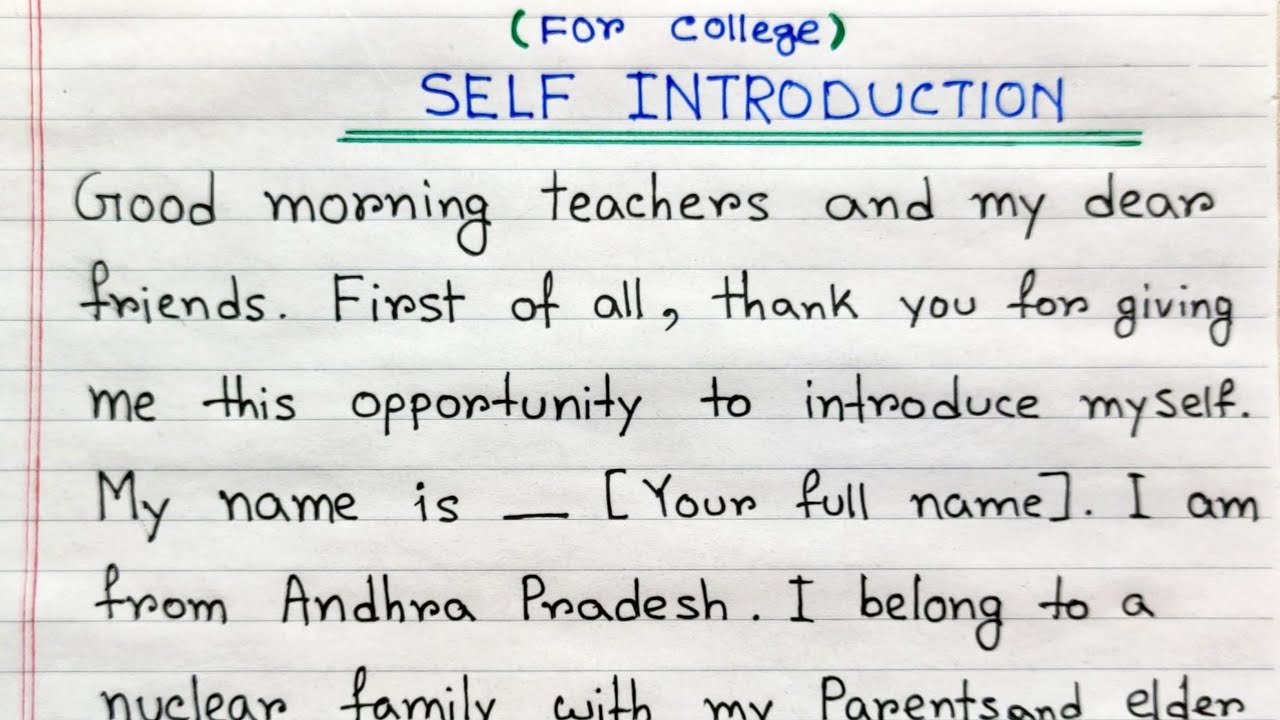 (For College)
SELF INTRODUCTION
Good morning teachers and my dear
friends. First of all, thank you for giving
me this opportunity to introduce myself.
My name is __ [Your full name]. I am
from Andhra Pradesh. I belong to a
nuclear family with my Parents and elder